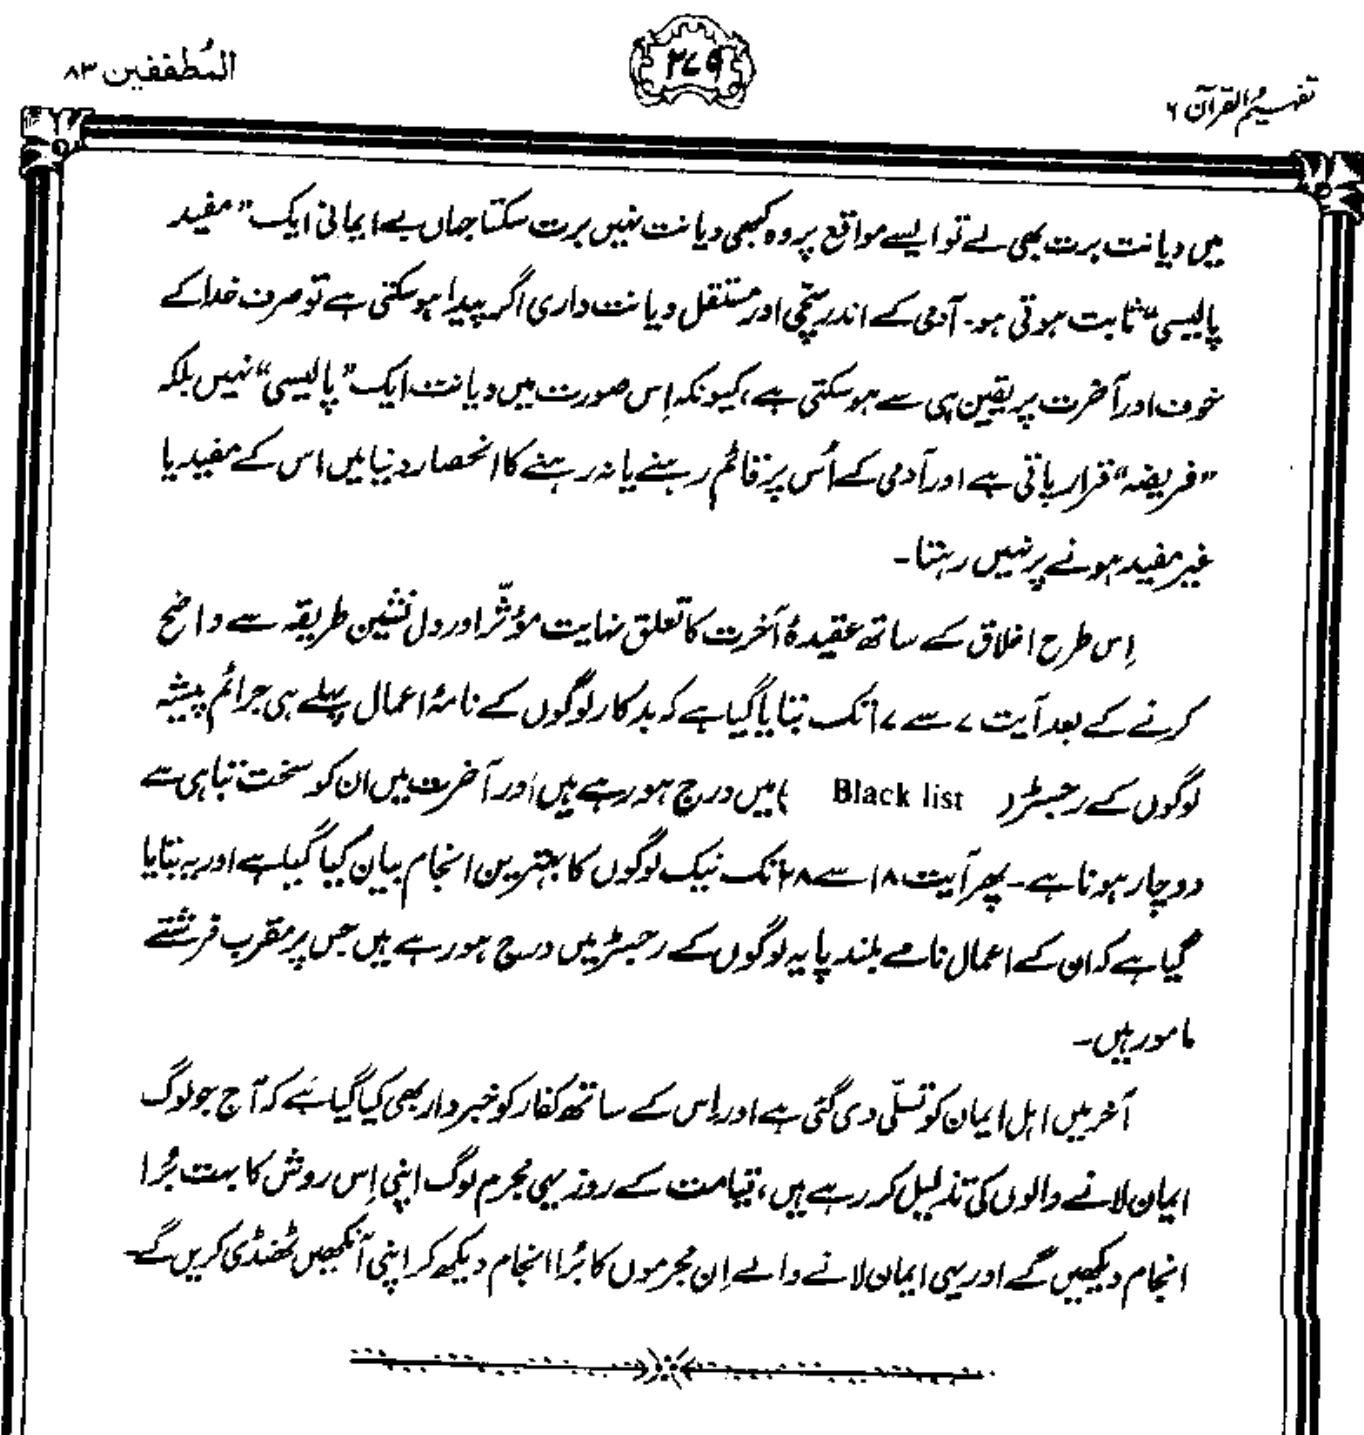 تفہیم القرآن ۶
۲۷۹
المُطففین ۸۳
میں دیانت برت بھی لے تو ایسے مواقع پر وہ کبھی دیانت نہیں برت سکتا جہاں بے ایمانی ایک ”مفید
پالیسی“ ثابت ہوتی ہو۔ آدمی کے اندر سچّی اور مستقل دیانت داری اگر پیدا ہو سکتی ہے تو صرف خدا کے
خوف اور آخرت پر یقین ہی سے ہو سکتی ہے، کیونکہ اِس صورت میں دیانت ایک ”پالیسی“ نہیں بلکہ
”فریضہ“ قرار پاتی ہے اور آدمی کے اُس پر قائم رہنے یا نہ رہنے کا انحصار دنیا میں اس کے مفید یا
غیر مفید ہونے پر نہیں رہتا۔
اِس طرح اخلاق کے ساتھ عقیدۂ آخرت کا تعلق نہایت مؤثّر اور دل نشین طریقہ سے واضح
کرنے کے بعد آیت ۷ سے ۱۷ تک بتایا گیا ہے کہ بدکار لوگوں کے نامۂ اعمال پہلے ہی جرائم پیشہ
لوگوں کے رجسٹر ( Black list ) میں درج ہو رہے ہیں اور آخرت میں ان کو سخت تباہی سے
دوچار ہونا ہے۔ پھر آیت ۱۸ سے ۲۸ تک نیک لوگوں کا بہترین انجام بیان کیا گیا ہے اور یہ بتایا
گیا ہے کہ ان کے اعمال نامے بلند پایہ لوگوں کے رجسٹر میں درج ہو رہے ہیں جس پر مقرب فرشتے
مامور ہیں۔
آخر میں اہل ایمان کو تسلّی دی گئی ہے اور اِس کے ساتھ کفار کو خبردار بھی کیا گیا ہے کہ آج جو لوگ
ایمان لانے والوں کی تذلیل کر رہے ہیں، قیامت کے روز یہی مجرم لوگ اپنی اِس روش کا بہت بُرا
انجام دیکھیں گے اور یہی ایمان لانے والے اِن مجرموں کا بُرا انجام دیکھ کر اپنی آنکھیں ٹھنڈی کریں گے۔